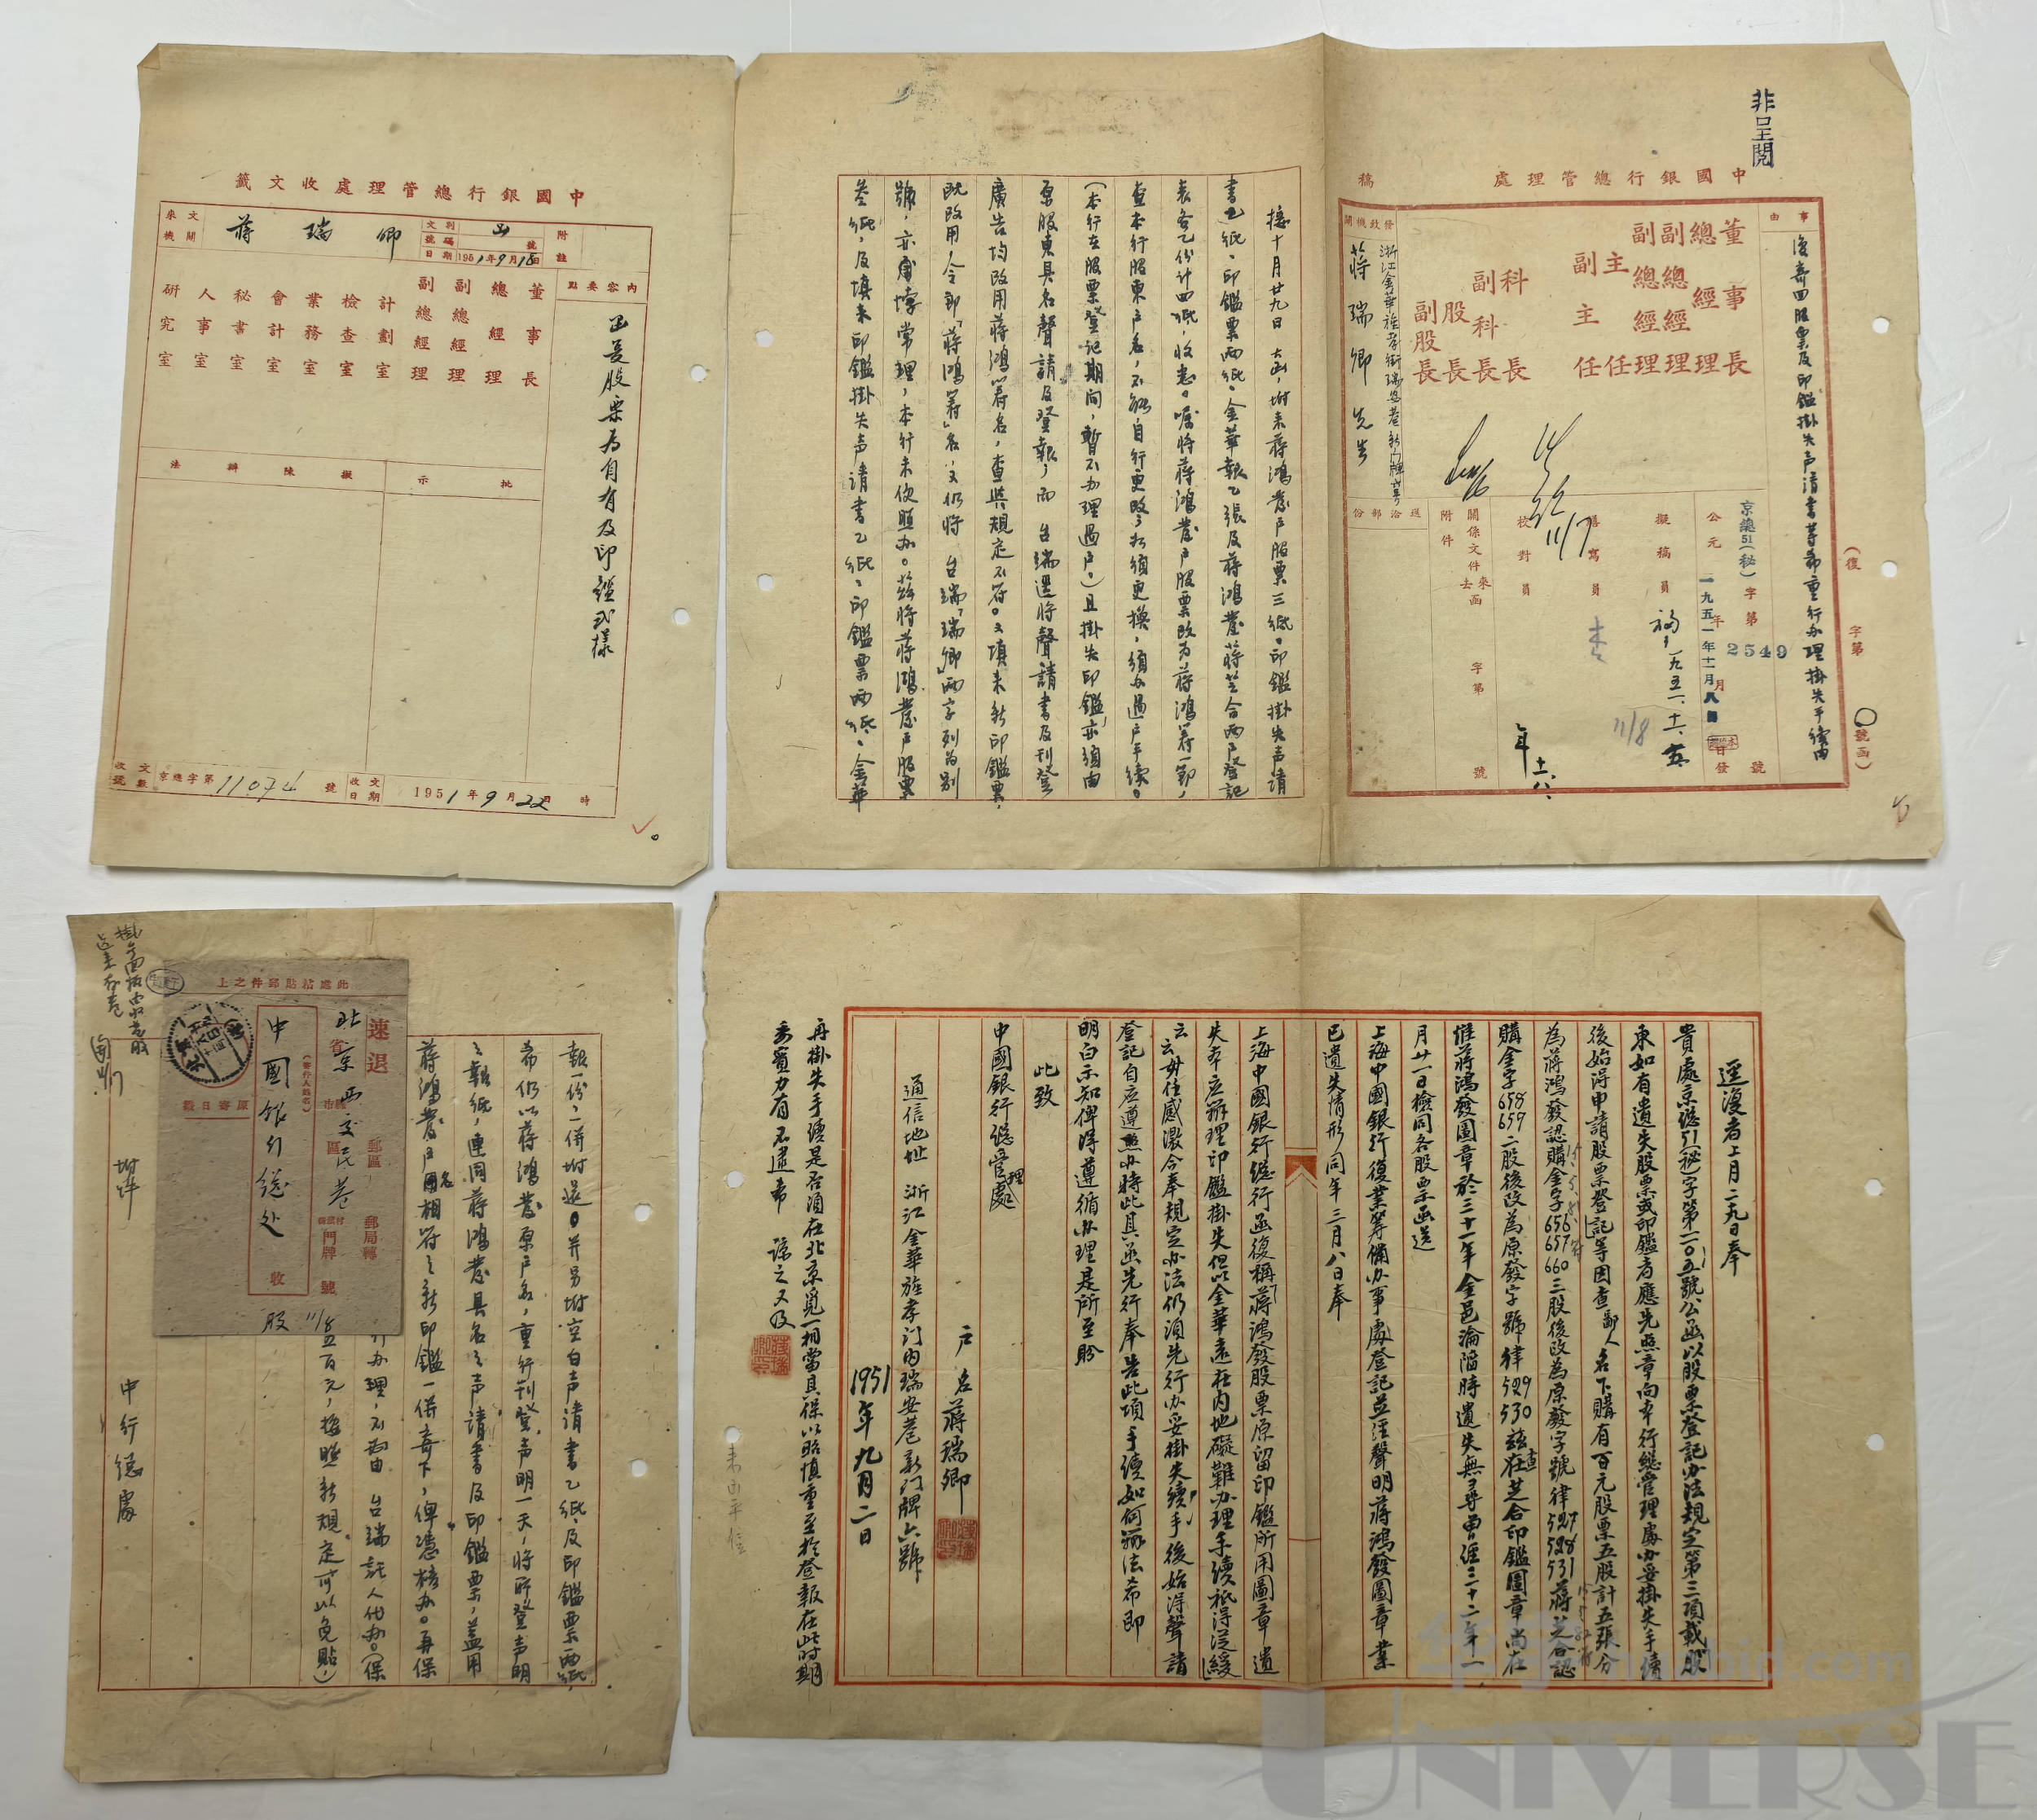 中國銀行總管理處收文籤
來文機關
蔣瑞卿
文別
函
號碼
號
日期
1951年9月18日
附註
內容要點
董事長
總經理
副總經理
副總經理
計劃室
檢查室
業務室
會計室
秘書室
人事室
研究室
批示
擬陳辦法
收文號數
京總字第11074號
收文日期
1951年9月22日
時
非呈閱
中國銀行總管理處
稿
事由
復寄回股票及印鑑掛失声請書等希重行办理掛失手續由
董事長
總經理
副總經理
副總經理
主任
副主任
科長
副科長
股長
副股長
發致機關
蔣瑞卿先生
京總51(秘)字第2549號
公元一九五一年十一月八日發
擬稿員
繕寫員
校對員
關係文件
來函
去
字第
號
附件
送洽部份
(復
字第
號函)
接十月廿九日大函,附来蔣鴻發户股票三纸、印鑑掛失声請
書乙纸、印鑑票两纸、金華報乙張及蔣鴻發蔣芝合两户登記
表各乙份计四纸,收悉。嘱將蔣鴻發户股票改为蔣鴻籌一節,
查本行股東户名,不能自行更改,如須更换,須办過户手續。
(本行在股票登記期间,暫不办理過户。)且掛失印鑑,亦須由
原股東具名聲請及登報,而台端還將聲請書及刊登
廣告均改用蔣鴻籌名,查與規定不符。又填来新印鑑票,
既改用,令即「蔣鴻籌」名,又仍将台端「瑞卿」两字列为别
號,亦屬悖常理,本行未便照办。兹將蔣鴻發户股票
叁纸,及填来印鑑掛失声請書乙纸、印鑑票两纸、金華
報一份,一併附還。并另附空白声请書乙纸,及印鑑票两纸,
希仍以蔣鴻發原户名,重行刊登声明一天,将所登声明
之報纸,連同蔣鴻發具名之声請書及印鑑票,盖用
蔣鴻發户名相符之新印鑑一併寄下,俾憑核办。再保
台端託人代办。(保
五百元,按照新規定可以免貼,)
附件
中行總處
此處粘貼郵件之上
速退
北京
省
市
西交民巷
郵區
區
郵局轉
門牌
號
(寄件人姓名)
中國銀行總处
收
原寄日戳
股
11/8
逕復者上月二九日奉
貴處京總51(秘)字第一〇五號公函以股票登記办法規定第三項載股
東如有遺失股票或印鑑者應先照章向本行總管理處办妥掛失手續
後始得申請股票登記等因查鄙人名下購有百元股票五股計五張分
為蔣鴻發認購金字656 657 660三股後改為原發字號律527 528 531蔣芝合認
購金字658 659二股後改為原發字號律529 530兹查芝合印鑑圖章尚在
惟蔣鴻發圖章於三十一年金邑淪陷時遺失無尋曾經三十二年一
月廿一日檢同各股票函送
上海中國銀行復業籌備办事處登記並經聲明蔣鴻發圖章業
已遺失情形同年三月八日奉
上海中國銀行總行函復稱蔣鴻發股票原留印鑑所用圖章遺
失本应辦理印鑑掛失但以金華遠在内地礙難办理手續祇得从緩
云云毋任感激今奉規定办法仍須先行办妥掛失續手後始得聲請
登記自应遵照办時此具函先行奉告此項手續如何辦法希即
明白示知俾得遵循办理是所至盼
此致
中國銀行總管理處
户名蔣瑞卿
通信地址浙江金華旌孝门内瑞安巷新门牌六號
1951年九月二日
再掛失手續是否須在北京覓一相當具保以昭慎重至於登報在此時期
委實力有不逮希諒之又及
来函平信
UNIVERSE